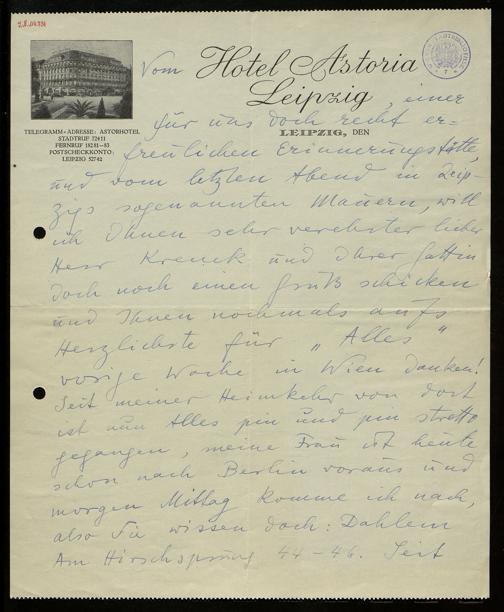 Vom Hotel Astoria
Leipzig, einer
TELEGRAMM-ADRESSE: ASTORHOTEL
STADTRUF 72411
FERNRUF 18281-83
POSTSCHECKKONTO:
LEIPZIG 52742
LEIPZIG, DEN
für uns doch recht er-
freulichen Erinnerungsstätte,
und vom letzten Abend in Leip-
zigs sogenannten Mauern, will
ich Ihnen sehr verehrter lieber
Herr Krenek und Ihrer Gattin
doch noch einen Gruß schicken
und Ihnen nochmals aufs
Herzlichste für „Alles"
vorige Woche in Wien danken!
Seit meiner Heimkehr von dort
ist nun Alles piu und piu stretto
gegangen, meine Frau ist heute
schon nach Berlin voraus und
morgen Mittag komme ich nach,
also Sie wissen doch: Dahlem
Am Hirschsprung 44-46. Seit